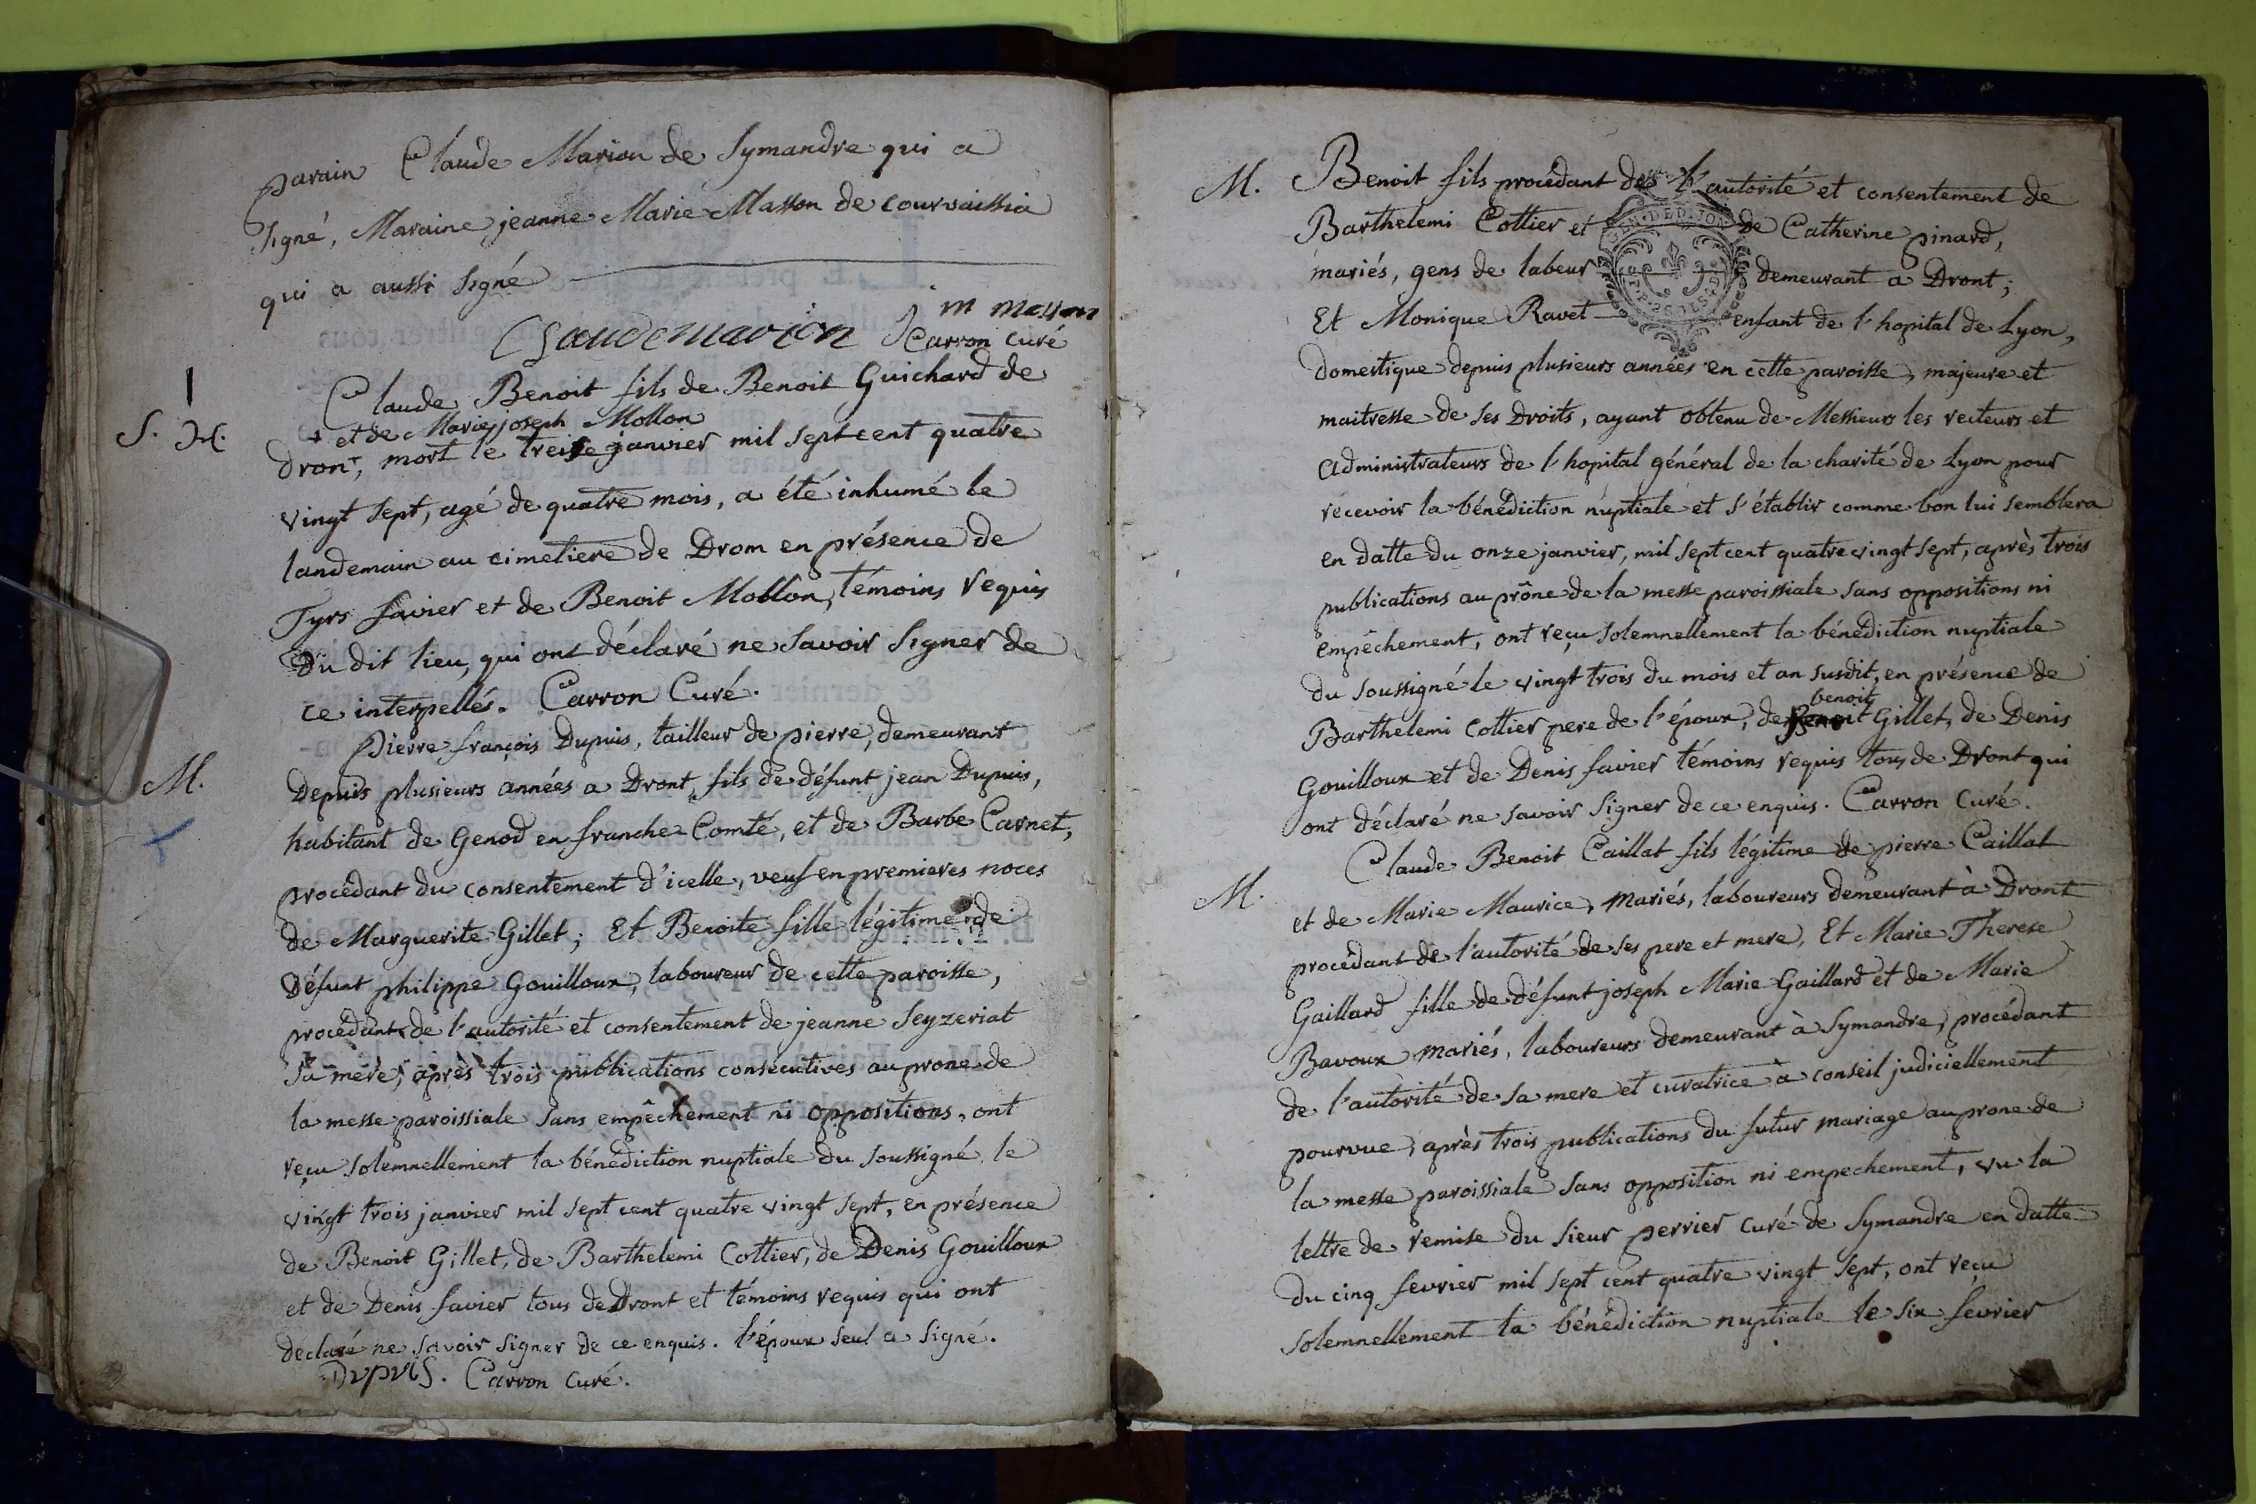 parain Claude Marion de Symandre qui a
signé, Maraine jeanne Marie Masson de courvaissia
qui a aussi signé
Claude marion J m masson
Carron curé
1
S. H.
Claude Benoit fils de Benoit Guichard de
+ et de Marie joseph Mollon
dront, mort le treize janvier mil sept cent quatre
vingt sept, agé de quatre mois, a été inhumé le
landemain au cimetiere de Drom en présence de
Tyrs favier et de Benoit Mollon, témoins requis
du dit lieu, qui ont déclaré ne savoir signer de
ce interpellés. Carron Curé.
M.
pierre françois Dupuis, tailleur de pierre, demeurant
depuis plusieurs années a Dront, fils de défunt jean Dupuis,
habitant de Genod en franche Comté, et de Barbe Carnet,
procédant du consentement d'icelle, veuf en premieres noces
de Marguerite Gillet; Et Benoite fille légitime de
défunt philippe Gouilloux, laboureur de cette paroisse,
procédant de l'autorité et consentement de jeanne Seyzeriat
sa mere, après trois publications consécutives au prone de
la messe paroissiale sans empêchement ni oppositions, ont
reçu solemnellement la bénédiction nuptiale du soussigné le
vingt trois janvier mil sept cent quatre vingt sept, en présence
de Benoit Gillet, de Barthelemi Cottier, de Denis Gouilloux
et de Denis favier tous de Dront et témoins requis qui ont
déclaré ne savoir signer de ce enquis. l'époux seul a signé.
Dupuis. Carron Curé.
M. Benoit fils procédant de l'autorité et consentement de
Barthelemi Cottier et de Catherine pinard,
mariés, gens de labeur demeurant a Dront;
Et Monique Ravet enfant de l'hopital de Lyon,
domestique depuis plusieurs années en cette paroisse, majeure et
maitresse de ses droits, ayant obtenu de Messieurs les recteurs et
administrateurs de l'hopital général de la charité de Lyon pour
recevoir la bénédiction nuptiale et s'établir comme bon lui semblera
en datte du onze janvier, mil sept cent quatre vingt sept, après trois
publications au prône de la messe paroissiale sans oppositions ni
empêchement, ont reçu solemnellement la bénédiction nuptiale
du soussigné le vingt trois du mois et an susdit, en présence de
benoit
Barthelemi Cottier pere de l'époux, de Benoit Gillet, de Denis
Gouilloux et de Denis favier témoins requis tous de Dront qui
ont déclaré ne savoir signer de ce enquis. Carron Curé.
M.
Claude Benoit Caillat fils légitime de pierre Caillat
et de Marie Maurice, mariés, laboureurs demeurant à Dront
procédant de l'autorité de ses pere et mere, Et Marie Therese
Gaillard fille de défunt joseph Marie Gaillard et de Marie
Bavoux mariés, laboureurs demeurant à Symandre, procédant
de l'autorité de sa mere et curatrice à conseil judiciellement
pourvue, après trois publications du futur mariage au prone de
la messe paroissiale sans opposition ni empechement, vu la
lettre de remise du sieur perrier curé de Symandre en datte
du cinq fevrier mil sept cent quatre vingt sept, ont reçu
solemnellement la bénédiction nuptiale le six février